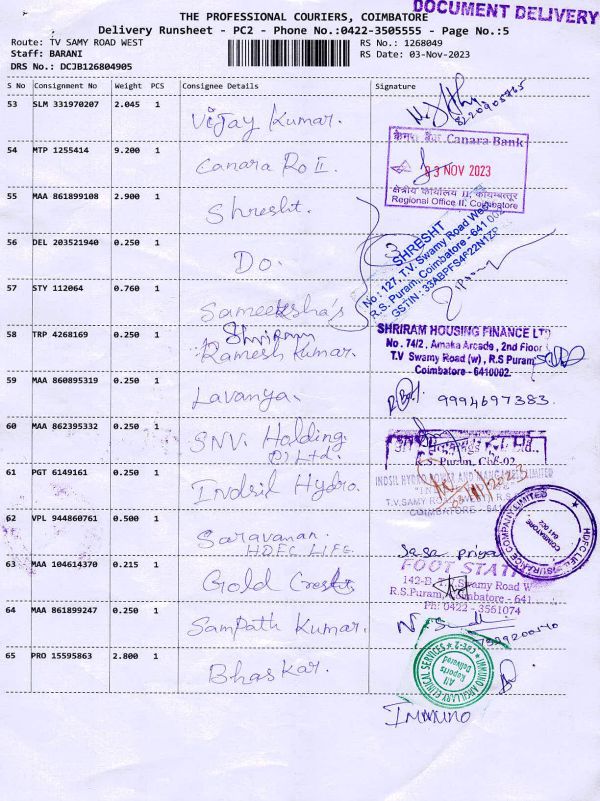 DOCUMENT DELIVERY
THE PROFESSIONAL COURIERS, COIMBATORE
Delivery Runsheet - PC2 - Phone No.:0422-3505555 - Page No.:5
Route: TV SAMY ROAD WEST
Staff: BARANI
DRS No.: DCJB126804905
RS No.: 1268049
RS Date: 03-Nov-2023
S No Consignment No Weight PCS Consignee Details Signature
53 SLM 331970207 2.045 1 Vijay Kumar.
54 MTP 1255414 9.200 1 Canara Ro II.
केनरा बैंक Canara Bank
03 NOV 2023
क्षेत्रीय कार्यालय II, कोयम्बत्तूर
Regional Office II, Coimbatore
55 MAA 861899108 2.900 1 Shresht.
56 DEL 203521940 0.250 1 Do.
SHRESHT
No: 127, T.V. Swamy Road West
R.S. Puram, Coimbatore - 641 002
GSTIN: 33ABPFS4622N1ZP
57 STY 112064 0.760 1 Sameeksha's
58 TRP 4268169 0.250 1 Shriram
Ramesh Kumar.
SHRIRAM HOUSING FINANCE LTD
No. 74/2, Amaka Arcade, 2nd Floor
T.V Swamy Road (w), R.S Puram
Coimbatore - 6410002.
59 MAA 860895319 0.250 1 Lavanya.
9994697383.
60 MAA 862395332 0.250 1 SNV. Holding
P) Ltd.
R.S. Puram, Cbe-02
61 PGT 6149161 0.250 1 Indsil Hydro.
INDSIL HYDRO POWER AND MANGANESE LIMITED
COIMBATORE - 641
62 VPL 944860761 0.500 1 Saravanan.
HDFC LIFE
HDFC LIFE INSURANCE COMPANY LIMITED
COIMBATORE
641 002
63 MAA 104614370 0.215 1 Gold Crests
FOOT STATI
142-B, T.V. Swamy Road W
R.S.Puram, Coimbatore - 641
Ph: 0422 - 3561074
64 MAA 861899247 0.250 1 Sampath Kumar.
65 PRO 15595863 2.800 1 Bhaskar.
IMMUNO ANCILLARY CLINICAL SERVICES
CBE-2
All
Reports
Delivered
Immuno